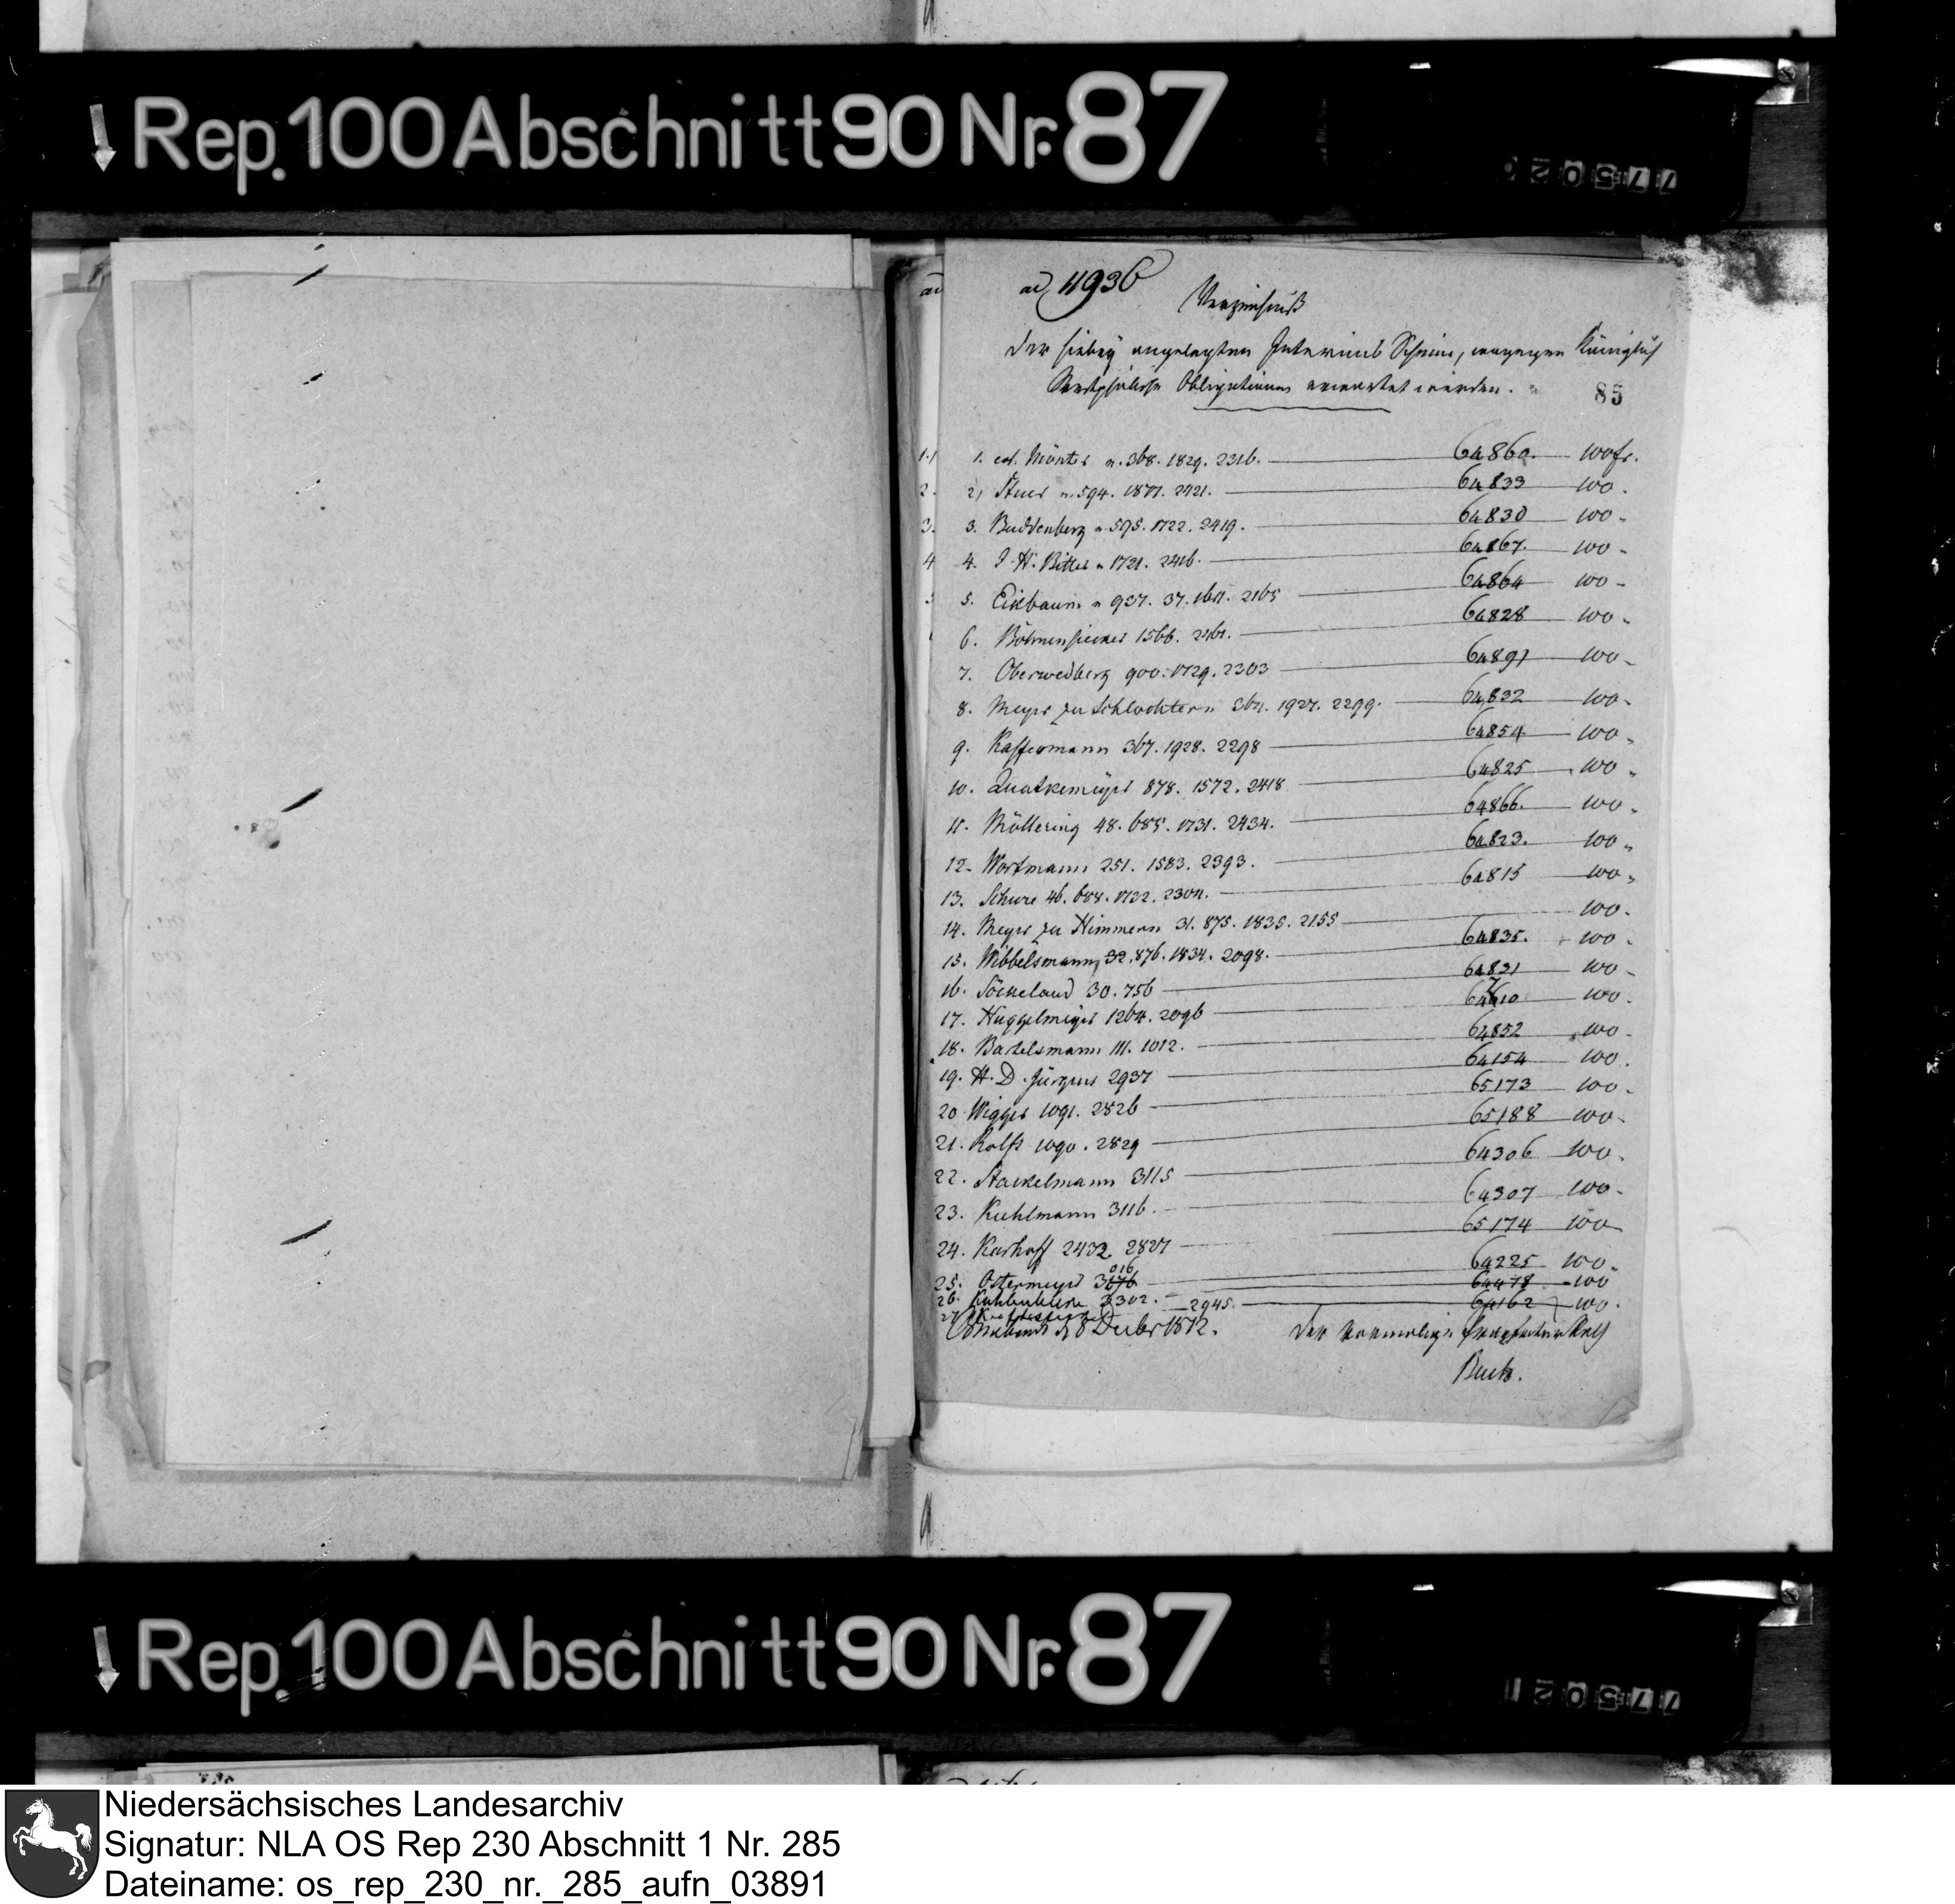 Rep. 100 Abschnitt 90 Nr. 87
77502
ad 11936
Verzeichniß
der hiebey angelegten Interims Scheine, wogegen Königlich
Westphälische Obligationen erwartet werden.
85
1. col. Mönter n. 368. 1829. 2316. 64860. 100 fr.
2, Stuer n. 594. 1871. 2421. 64833 100.
3. Buddenberg n 595. 1722. 2419. 64830 100.
4. J. H. Bitter n 1721. 2416. 64867. 100
5. Eickbaum n 937. 37. 1641. 2165 64864 100
6. Böhmensieker 1566. 64828 100.
7. Oberwedberg 900. 1729. 2303 64891 100
8. Meyer zu Schlochtern 364. 1927. 2299. 64832 100.
9. Kassenmann 367. 1928. 2298 64854 100
10. Quatkemeyer 878. 1572. 2418 64825 100
11. Möllering 48. 685. 1731. 2434. 64866. 100
12. Wortmann 251. 1583. 2393. 64823. 100
13. Schure 46. 688. 1732. 2304. 64815 100
14. Meyer zu Himmern 31. 875. 1835. 2155 100.
15. Wibbelsmann 32. 876. 1834. 2098. 64835. 100.
16. Söckeland 30. 756 64831 100
17. Huggelmeyer 1264. 2096 100.
18. Bartelsmann 111. 1012. 64852 100
19. H. D. Jürgens 2937 64154 100.
20. Wigger 1091. 2826 65173 100
21. Rolfs 1090. 2829 65188 100.
22. Stackelmann 3115 64306 100.
23. Kuhlmann 3116. 64307 100.
24. Karhoff 2432 2827 65174 100
25. Ostermeyer 3016 64225 100.
26. 3302. 64478 100
27. 2945. 64162 100.
Osnabrück d 8 Decbr 1812. der vormalige Praefectur Rath
Buch.
Rep. 100 Abschnitt 90 Nr. 87
1 2 0 5 7 7
Niedersächsisches Landesarchiv
Signatur: NLA OS Rep 230 Abschnitt 1 Nr. 285
Dateiname: os_rep_230_nr._285_aufn_03891